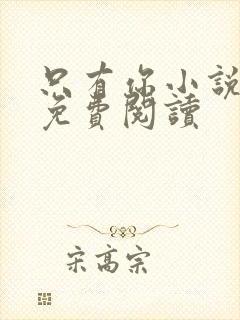 只有你小說
免費閱讀
宋高宗